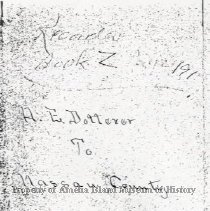 Records
Book Z
A. E. Dotterer
To
Nassau County
Property of Amelia Island Museum of History